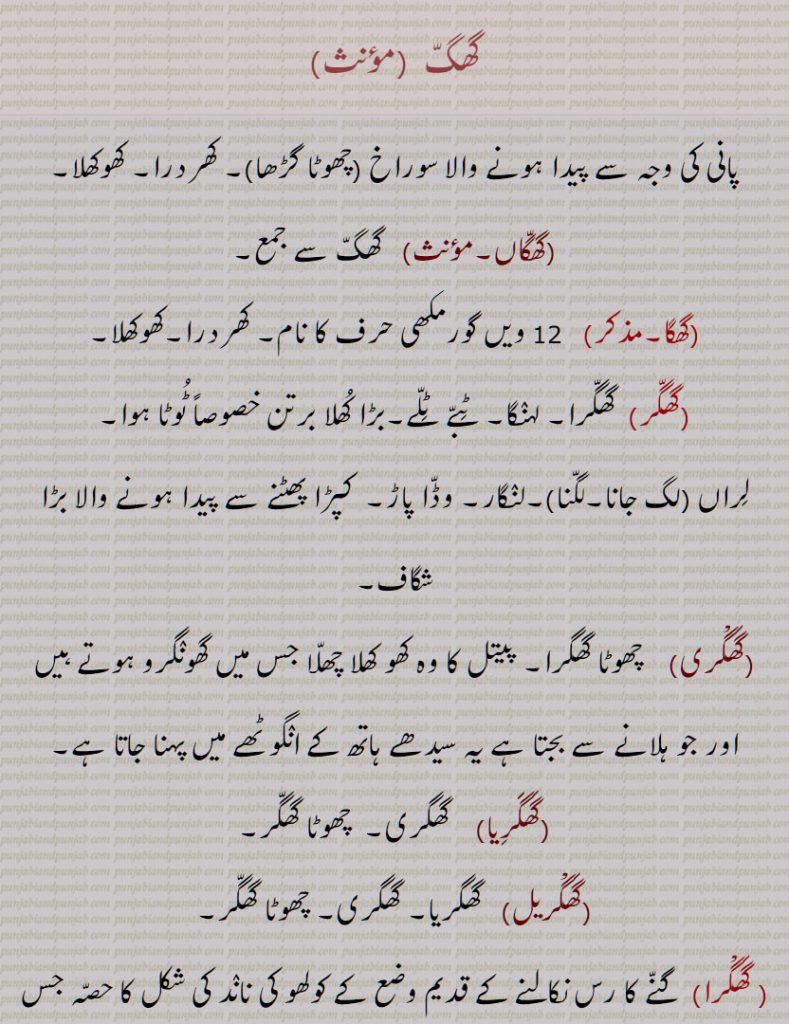 گھگّ (مؤنث)
پانی کی وجہ سے پیدا ہونے والا سوراخ (چھوٹا گڑھا)۔ کھردرا۔ کھوکھلا۔
(گھگّاں۔مؤنث) گھگّ سے جمع۔
(گھگا۔مذکر) 12 ویں گورمکھی حرف کا نام۔ کھردرا۔کھوکھلا۔
(گھگّر) گھگّرا۔ لہنْگا۔ ٹبّے ٹلّے۔بڑا کُھلا برتن خصوصاً ٹُوٹا ہوا۔
لِراں (لگ جانا۔لگّنا)۔لنْگار۔ وڈّا پاڑ۔ کپڑا پھٹنے سے پیدا ہونے والا بڑا
شگاف۔
(گھگْری) چھوٹا گھگرا۔ پیتل کا وہ کھو کھلا چھلّا جس میں گھونْگرو ہوتے ہیں
اور جو ہلانے سے بجتا ہے یہ سیدھے ہاتھ کے انْگوٹھے میں پہنا جاتا ہے۔
(گھگَرِیا) گھگری۔ چھوٹا گھگّر۔
(گھگْریل) گھگریا۔ گھگری۔ چھوٹا گھگّر۔
(گھگْرا) گنّے کا رس نکالنے کے قدیم وضع کے کولھو کی نانْد کی شکل کا حصّہ جس